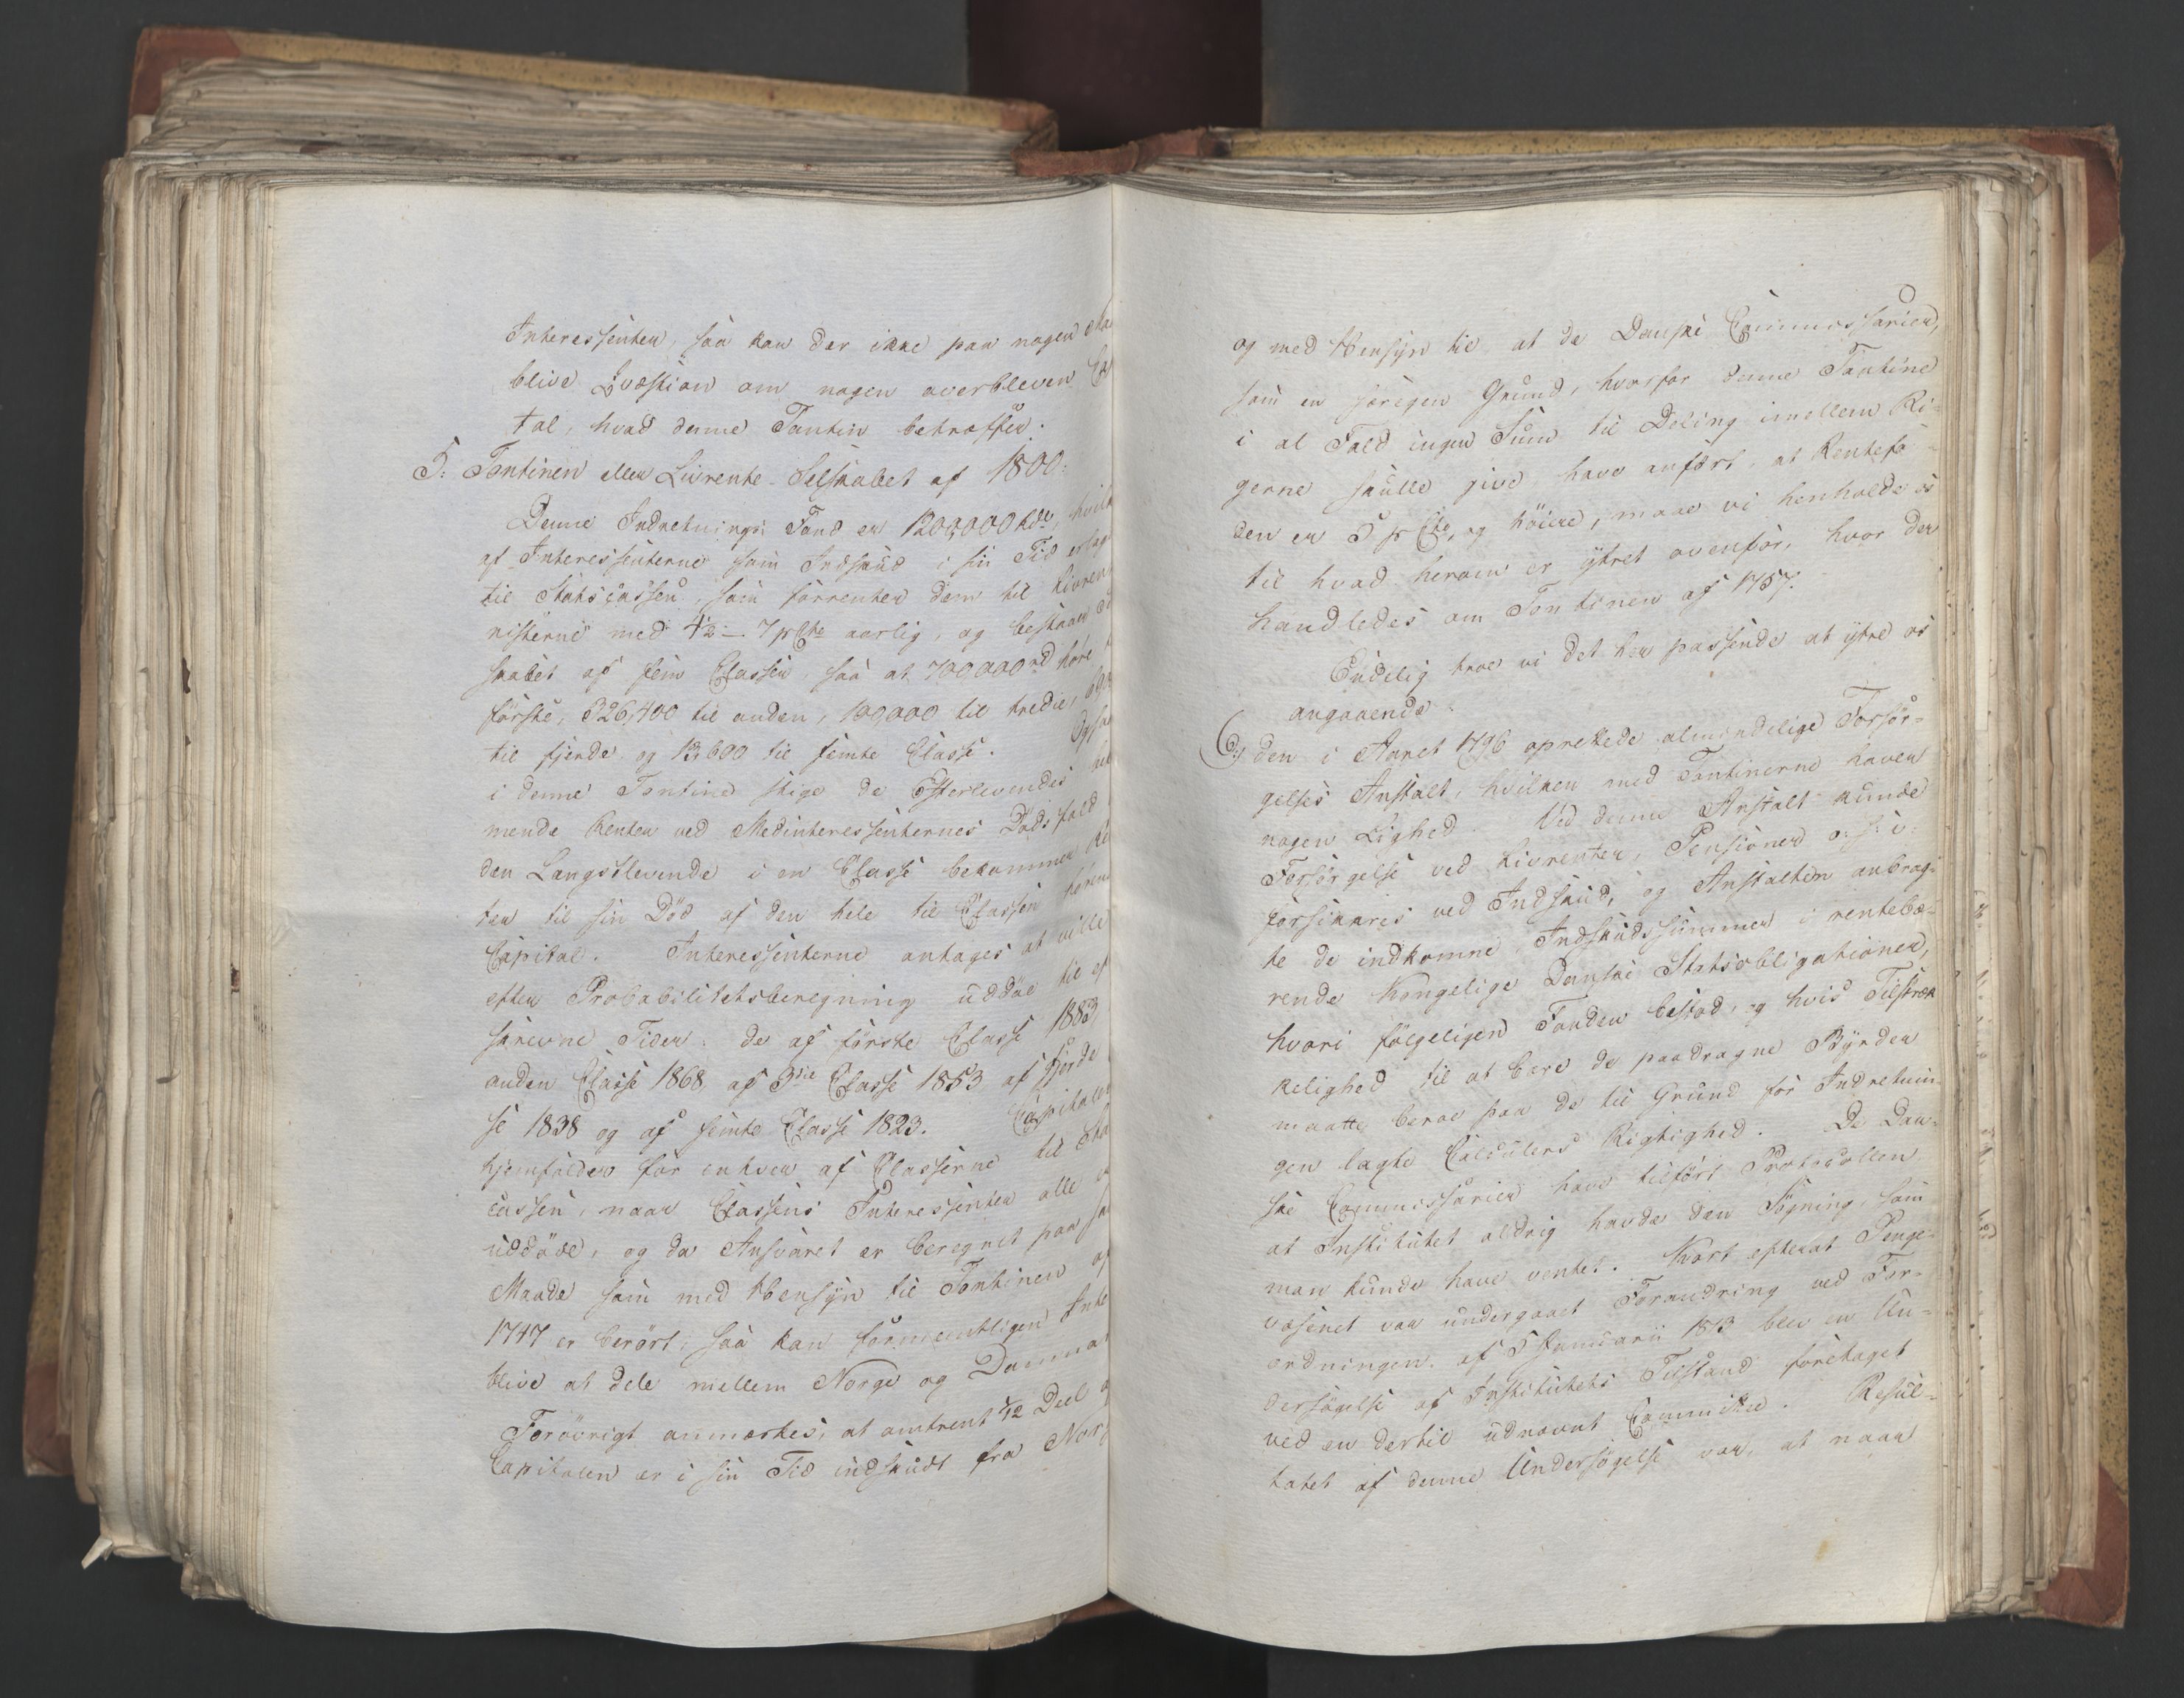 Interessenter, saa kan der ikke paa nogen
blive Qvæstion om nogen overbleven
tal, hvad denne Tontin betræffer.
5: Tontinen eller Livrente-Selskabet af 1800:
Denne Indretnings Fond er 1200,000 Rdr,
af Interessenterne som Indskud i sin Tid
til Statscassen, som forrenter dem til
nisterne med 4½ — 7 pCto aarlig, og bestaaer
skabet af fem Classer, saa at 700000 rd høre
første, 326,400 til anden, 100,000 til tredie,
til fjerde og 13,600 til femte Classe.
i denne Tontine stige de Efterlevendes
mende Renter ved Medinteressenternes Dødsfald
den Længstlevende i en Classe bekommer
ter til sin Død af den hele til Classen
Capital. Interessenterne antages at ville
efter Probabilitetsberegning uddøe til
skrevne Tider: de af første Classe 1883
anden Classe 1868 af 3die Classe 1853 af fjerde
se 1838 og af femte Classe 1823. Capitalen
hjemfalder for enhver af Classerne til
cassen, naar Classens Interessenter alle
uddøde, og da Ansvaret er beregnet paa
Maade som med Hensyn til Tontinen
1747 er berørt, saa kan formeentligen
blive at dele mellem Norge og
Forøvrigt anmærkes, at omtrent 1/12 Deel
Capitalen er i sin Tid indskudt fra
og med Hensyn til at de Danske Commissarier,
som en særegen Grund, hvorfor denne Tontine
i al Fald ingen Sum til Deling imellem Ri-
gerne skulle give, have anført, at Rentefo-
den er 5 pCto og høiere, maae vi henholde os
til hvad herom er yttret ovenfor, hvor der
handledes om Tontinen af 1757.
Endelig troe vi det her passende at yttre os
angaaende
6:) den i Aaret 1796 oprettede almindelige Forsør-
gelses Anstalt, hvilken med Tontinerne haver
nogen Lighed. Ved denne Anstalt kunde
Forsørgelse ved Livrenter, Pensioner o: s: v:
forsikkres ved Indskud, og Anstalten anbrag-
te de indkomne Indskudssummer i rentebæ-
rende Kongelige Danske Statsobligationer,
hvori følgeligen Fonden bestod, og hvis Tilstræk
kelighed til at bære de paadragne Byrder
maatte beroe paa de til Grund for Indretnin
gen lagte Calculers Rigtighed. De Dan-
ske Commissarier have tilført Protocollen
at Institutet aldrig havde den Søgning, som
man kunde have ventet. Kort efterat Penge-
væsenet var undergaaet Forandring ved For-
ordningen af 5 Januarii 1813 blev en Un-
dersøgelse af Institutets Tilstand foretaget
ved en dertil udnævnt Committee. Resul-
tatet af denne Undersøgelse var, at naar